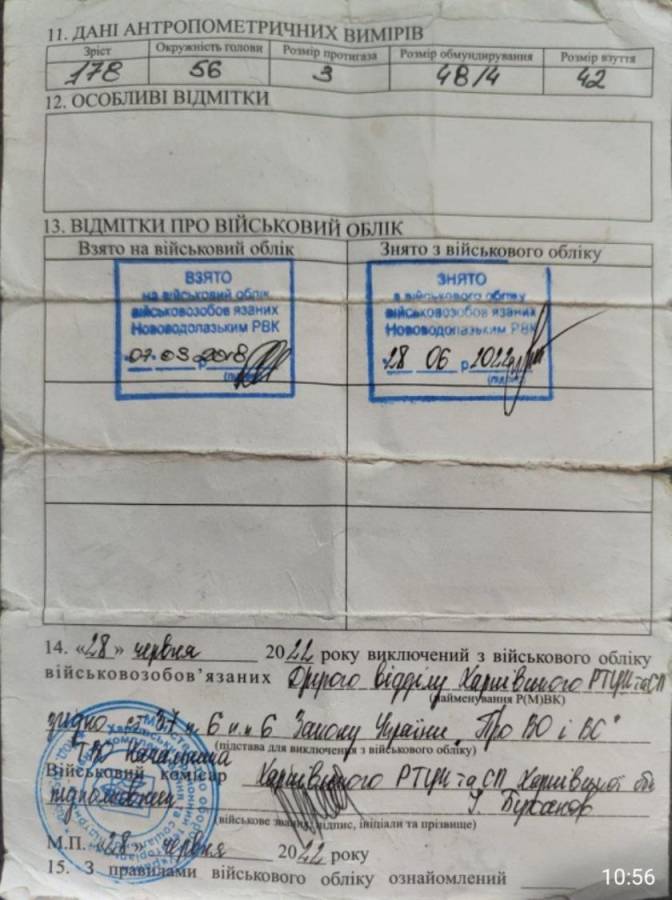 11. ДАНІ АНТРОПОМЕТРИЧНИХ ВИМІРІВ
Зріст Окружність голови Розмір протигаза Розмір обмундирування Розмір взуття
178 56 3 48/4 42
12. ОСОБЛИВІ ВІДМІТКИ
13. ВІДМІТКИ ПРО ВІЙСЬКОВИЙ ОБЛІК
Взято на військовий облік Знято з військового обліку
ВЗЯТО
на військовий облік
військовозобов язаних
Нововодолазьким РВК
07 03 2018
ЗНЯТО
з військового обліку
військовозобов язаних
Нововодолазьким РВК
28 06 р 2022
(підпис)
14. «28» червня 2022 року виключений з військового обліку
військовозобов’язаних Другого відділу Харківського РТЦК та СП
(найменування Р(М)ВК)
згідно ст 37 п. 6 п.п 6 Закону України "Про ВО і ВС"
(підстава для виключення з військового обліку)
ТВО начальника
Військовий комісар Харківського РТЦК та СП Харківської обл
підполковник
(військове звання, підпис, ініціали та прізвище)
М.П. «28» червня 2022 року
15. З правилами військового обліку ознайомлений
10:56